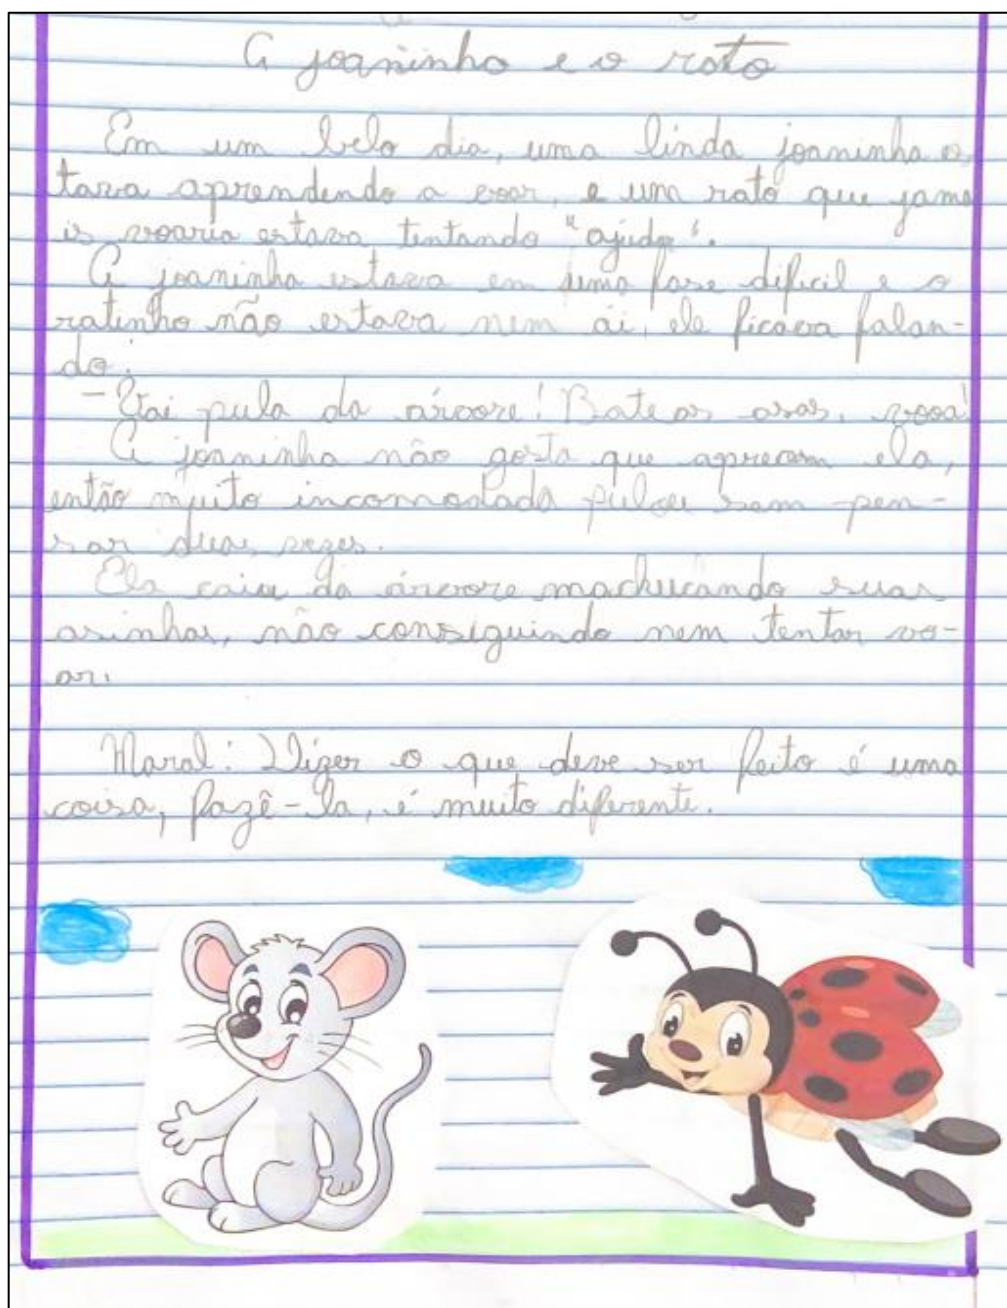 A joaninha e o rato
Em um belo dia, uma linda joaninha es
tava aprendendo a voar, e um rato que jama
is voaria estava tentando "ajuda".
A joaninha estava em uma fase difícil e o
ratinho não estava nem ái, ele ficava falan-
do:
- Vai pula da árvore! Bate as asas, vooa!
A joaninha não gosta que apressem ela,
então muito incomodada pulou sem pen-
sar duas vezes.
Ela caiu da árvore machucando suas
asinhas, não conseguindo nem tentar vo-
ar.
Moral: Dizer o que deve ser feito é uma
coisa, fazê-la, é muito diferente.